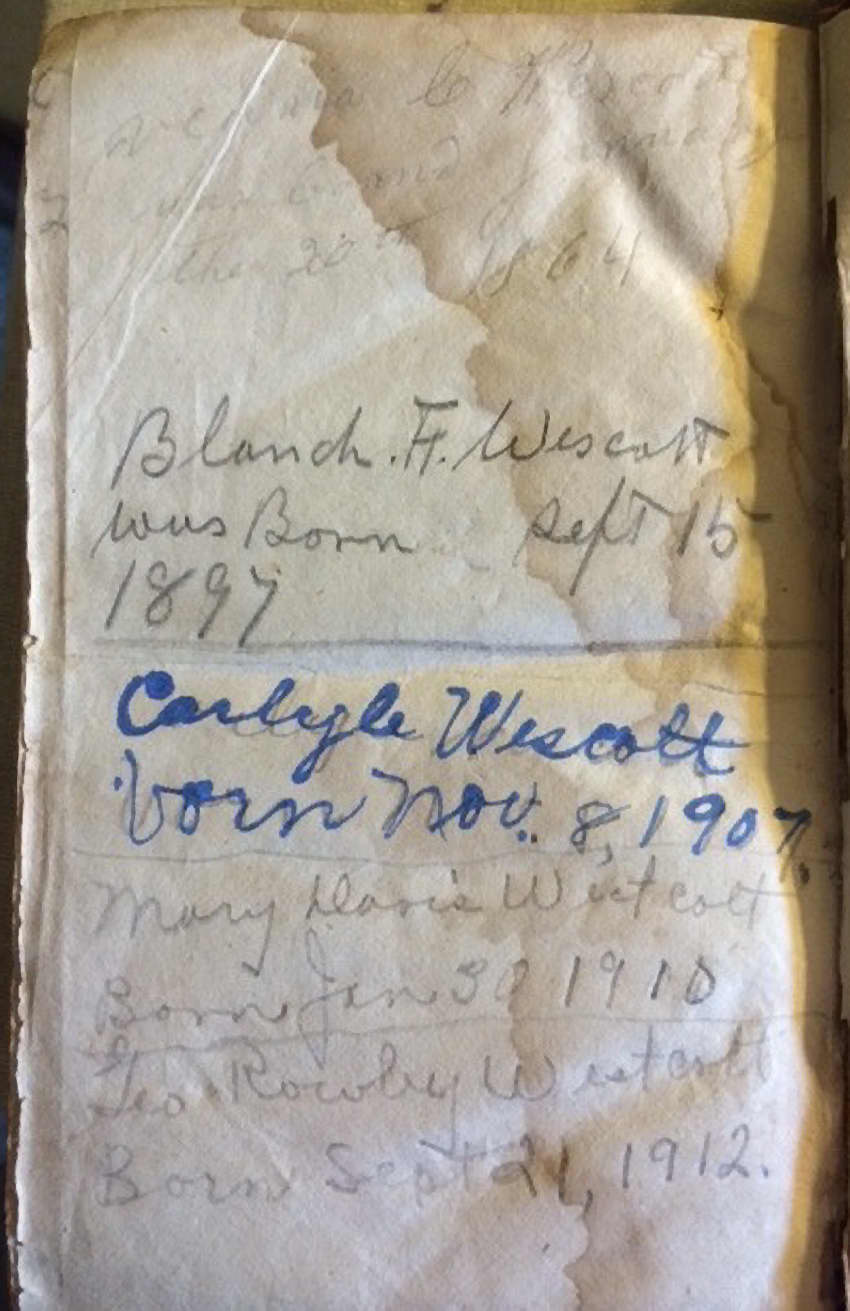 the 20th 1864
Blanch. F. Wescott
was Born Sept 15
1897
Carlyle Wescott
born Nov. 8, 1907.
Mary Davis Westcott
Born Jan 30 1910
Geo. Rowley Westcott
Born Sept 21, 1912.